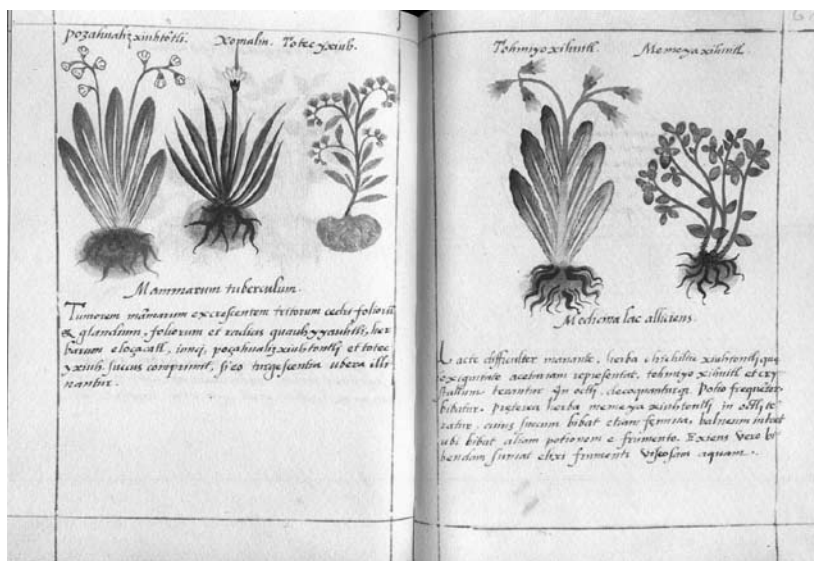 poçahualiz xiuhtõtli. Xomalin. Totec yxiuh.
Mammarum tuberculum.
Tumorem mãmarum excrescentem tritorum cedri foliorũ
& glandium, foliorum et radicis quauhyyauhtli, her
barum eloçacatl, iunci, poçahualizxiuhtontli et totec
yxiuh succus comprimit, si eo turgescentia ubera illi
nantur.
Tohmiyoxihuitl. Memeyaxihuitl.
Medicina lac alliciens.
Lacte difficulter manante, herba chichiltic xiuhtontli, quę
exiguitate representat, tohmiyoxihuitl et cry
stallum terantur In octli, decoquanturq. Potio frequẽter
bibitur. Preterea herba memeya xiuhtontli in octli te
ratur, cuius succum bibat etiam femina, balneum intret
ubi bibat aliam potionem e frumento. Exiens vero bi
bendam sumat elixi frumenti viscosam aquam.